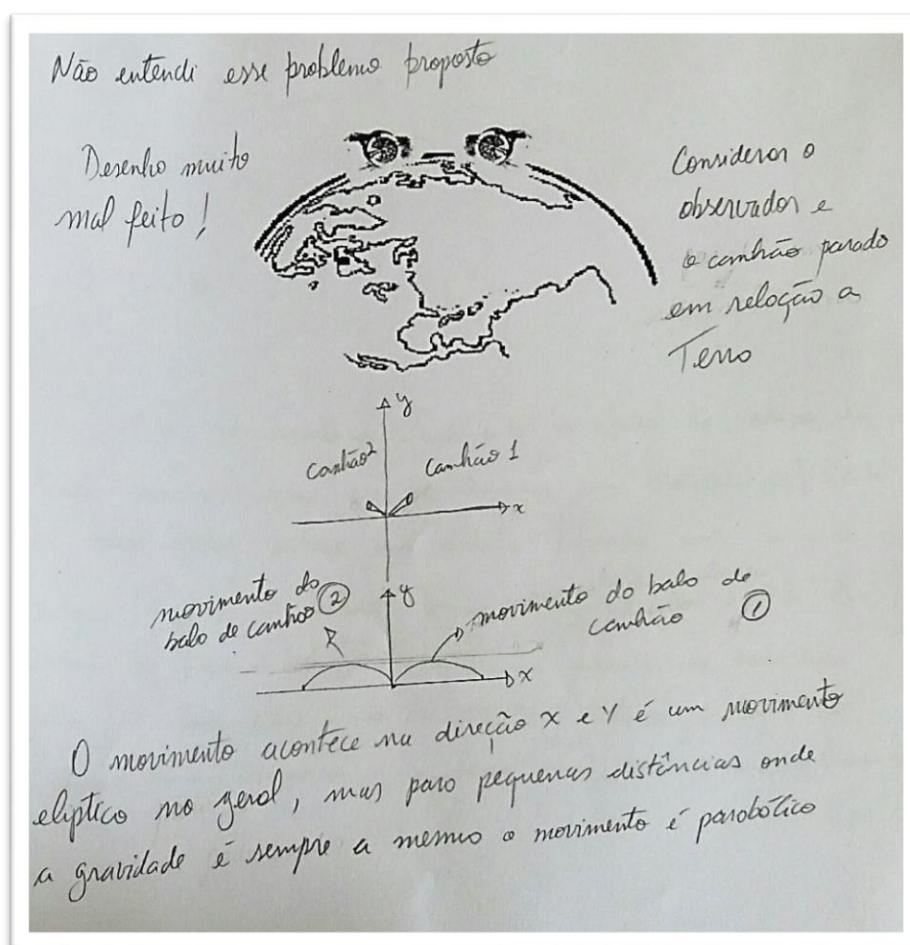 Não entendi esse problema proposto
Desenho muito
mal feito!
Considerar o
observador e
o canhão parado
em relação a
Terra
y
canhão 2
canhão 1
x
movimento da
bala de canhão 2
y
movimento da bala de
canhão 1
x
O movimento acontece na direção x e y é um movimento
elíptico no geral, mas para pequenas distâncias onde
a gravidade é sempre a mesma o movimento é parabólico